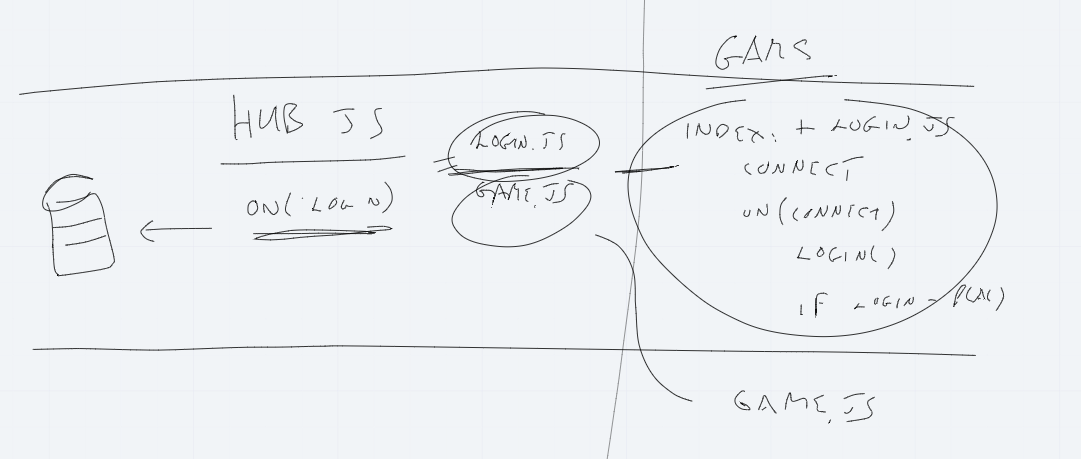 GAMS
HUB JS
ON(LOGIN)
LOGIN.JS
GAME.JS
INDEX: + LOGIN.JS
CONNECT
ON(CONNECT)
LOGIN()
IF LOGIN -
GAME.JS